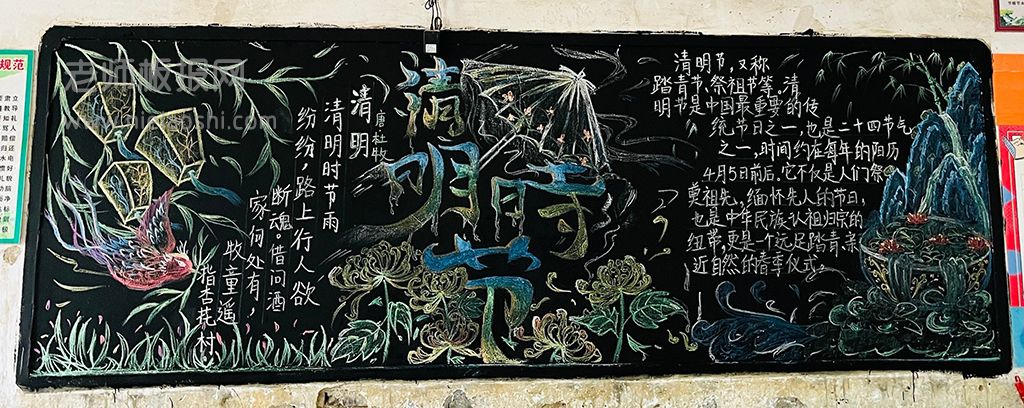 规范
老师板报网
清明
唐 杜牧
清明时节雨
纷纷,路上行人欲
断魂。借问酒
家何处有,
牧童遥
指杏花村。
清明时节
清明节,又称
踏青节、祭祖节等。清
明节是中国最重要的传
统节日之一,也是二十四节气
之一,时间约在每年的阳历
4月5日前后。它不仅是人们祭
奠祖先,缅怀先人的节日,
也是中华民族认祖归宗的
纽带,更是一个远足踏青、亲
近自然的春季仪式。